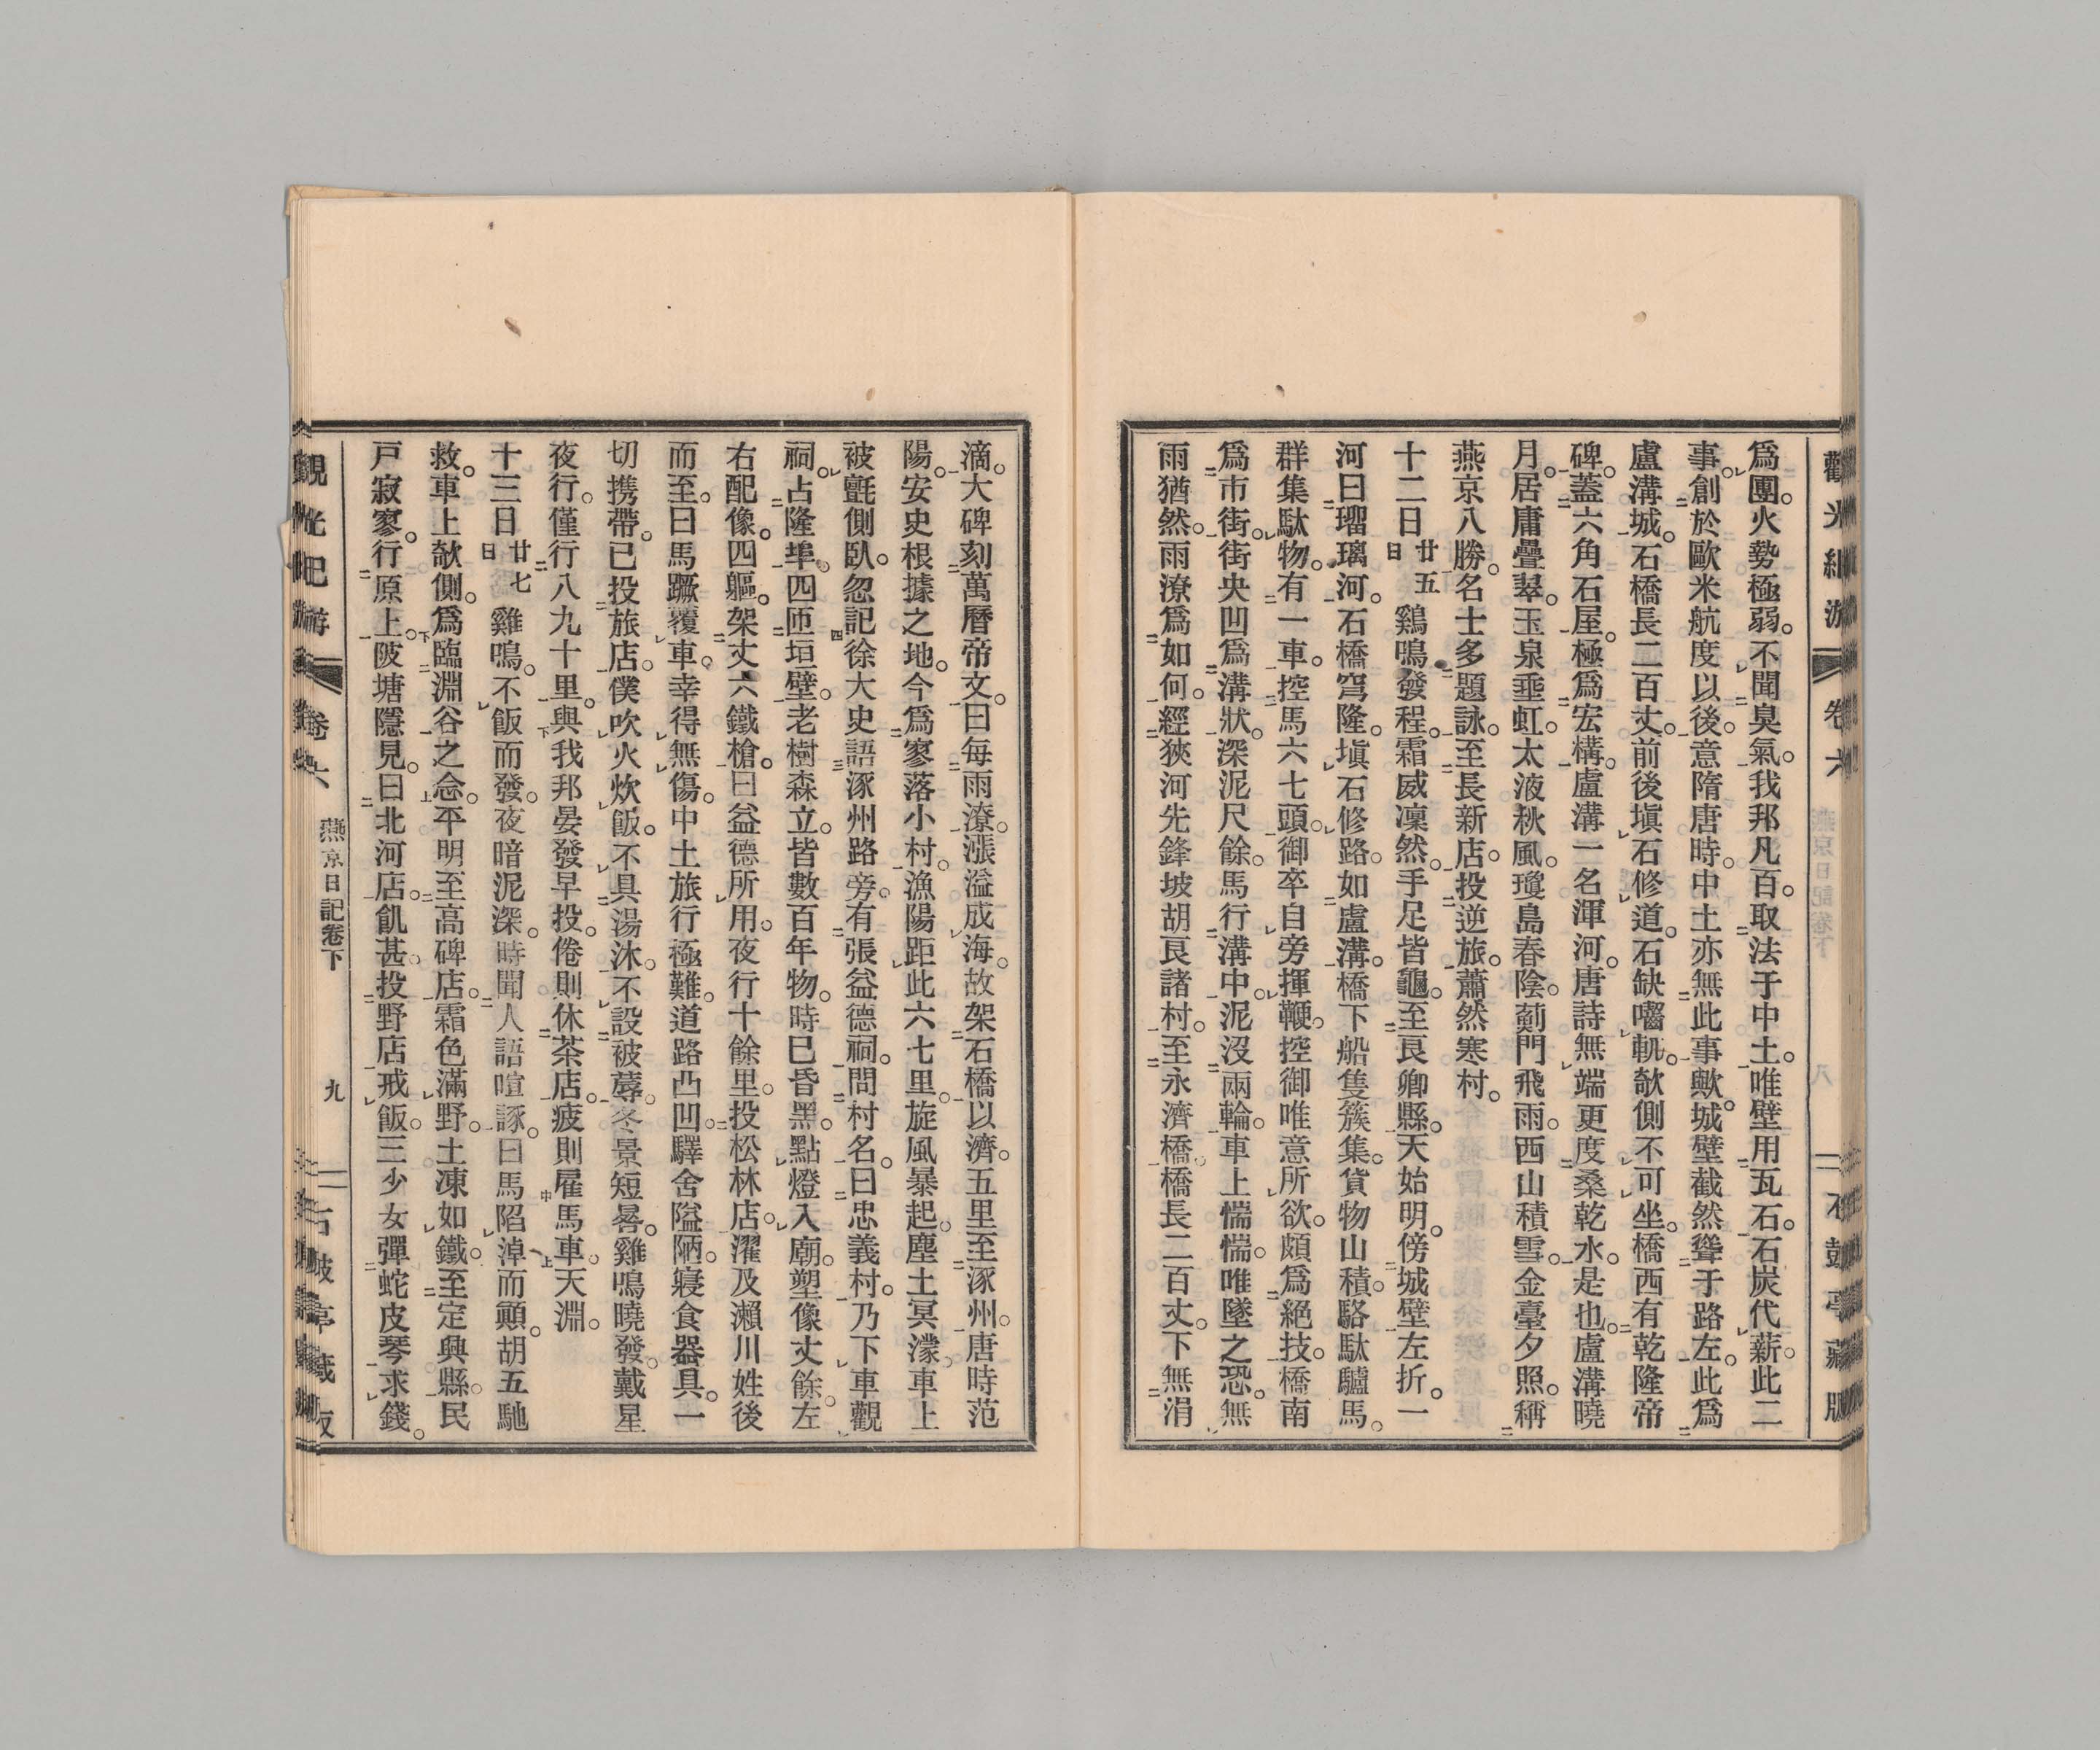 爲團。火勢極弱。不聞臭氣。我邦凡百。取法于中土。唯壁用瓦石。石炭代薪。此二
事。創於歐米航度以後。意隋唐時。中土亦無此事歟。城壁截然聳于路左。此爲
盧溝城。石橋長二百丈。前後塡石修道。石缺嚙軏。欹側不可坐。橋西有乾隆帝
碑。蓋六角石屋。極爲宏構。盧溝一名渾河。唐詩無端更度桑乾水。是也。盧溝曉
月。居庸疊翠。玉泉垂虹。太液秋風。瓊島春陰。薊門飛雨。西山積雪。金臺夕照。稱
燕京八勝。名士多題詠。至長新店。投逆旅。蕭然寒村。
十二日廿五日鷄鳴發程。霜威凜然。手足皆龜。至良鄕縣。天始明。傍城壁左折。一
河曰瑠璃河。石橋穹隆。塡石修路。如盧溝。橋下船隻簇集。貨物山積。駱駄驢馬。
群集駄物。有一車。控馬六七頭。御卒自旁揮鞭。控御唯意所欲。頗爲絕技。橋南
爲市街。街央凹爲溝狀。深泥尺餘。馬行溝中。泥沒兩輪。車上惴惴。唯墜之恐。無
雨猶然。雨潦爲如何。經狹河先鋒坡胡良諸村。至永濟橋。橋長二百丈。下無涓
滴。大碑刻萬曆帝文。曰每雨潦。漲溢成海。故架石橋以濟。五里至涿州。唐時范
陽。安史根據之地。今爲寥落小村。漁陽距此六七里。旋風暴起。塵土冥濛。車上
被氈側臥。忽記徐大史語涿州路旁。有張益德祠。問村名。曰忠義村。乃下車觀
祠。占隆埠。四匝垣壁。老樹森立。皆數百年物。時已昏黑。點燈入廟。塑像丈餘。左
右配像。四軀。架丈六鐵槍。曰益德所用。夜行十餘里。投松林店。濯及瀨川姓後
而至。曰馬蹶覆車。幸得無傷。中土旅行極難。道路凸凹。驛舍隘陋。寢食器具。一
切携帶。已投旅店。僕吹火炊飯。不具湯沐。不設被蓐。冬景短晷。雞鳴曉發。戴星
夜行。僅行八九十里。與我邦晏發早投。倦則休茶店。疲則雇馬車。天淵。
十三日廿七日雞鳴。不飯而發。夜暗泥深。時聞人語喧豗。曰馬陷淖而顚。胡五馳
救。車上欹側。爲臨淵谷之念。平明至高碑店。霜色滿野。土凍如鐵。至定興縣。民
戶寂寥。行原上。陂塘隱見。曰北河店。飢甚。投野店戒飯。三少女彈蛇皮琴求錢。
卷六
燕京日記卷下
九